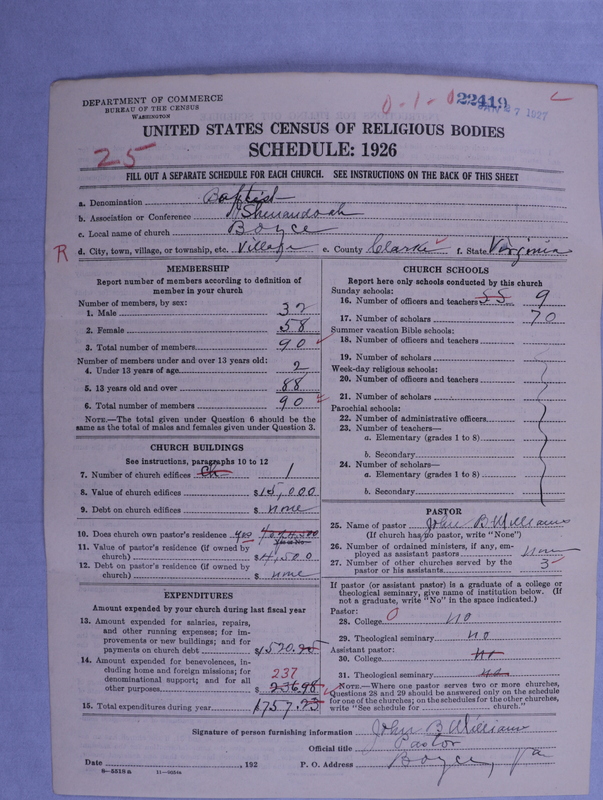 DEPARTMENT OF COMMERCE
BUREAU OF THE CENSUS
WASHINGTON
0-1-0 22419 JAN 27 1927
UNITED STATES CENSUS OF RELIGIOUS BODIES
SCHEDULE: 1926
25
FILL OUT A SEPARATE SCHEDULE FOR EACH CHURCH. SEE INSTRUCTIONS ON THE BACK OF THIS SHEET
a. Denomination Baptist
b. Association or Conference Shenandoah
c. Local name of church Boyce
R d. City, town, village, or township, etc. Village e. County Clarke f. State Virginia
MEMBERSHIP
Report number of members according to definition of
member in your church
Number of members, by sex:
1. Male 32
2. Female 58
3. Total number of members 90
Number of members under and over 13 years old:
4. Under 13 years of age 2
5. 13 years old and over 88
6. Total number of members 90
NOTE.—The total given under Question 6 should be the
same as the total of males and females given under Question 3.
CHURCH BUILDINGS
See instructions, paragraphs 10 to 12
7. Number of church edifices Ch 1
8. Value of church edifices $15,000
9. Debt on church edifices $ none
10. Does church own pastor's residence yes
Yes or No
11. Value of pastor's residence (if owned by
church) $4,500
12. Debt on pastor's residence (if owned by
church) $ none
EXPENDITURES
Amount expended by your church during last fiscal year
13. Amount expended for salaries, repairs,
and other running expenses; for im-
provements or new buildings; and for
payments on church debt $1520.25
14. Amount expended for benevolences, in-
cluding home and foreign missions; for
denominational support; and for all
other purposes 237 $ 236.98
15. Total expenditures during year 1757.23
CHURCH SCHOOLS
Report here only schools conducted by this church
Sunday schools:
16. Number of officers and teachers SS 9
17. Number of scholars 70
Summer vacation Bible schools:
18. Number of officers and teachers
19. Number of scholars
Week-day religious schools:
20. Number of officers and teachers
21. Number of scholars
Parochial schools:
22. Number of administrative officers
23. Number of teachers—
a. Elementary (grades 1 to 8)
b. Secondary
24. Number of scholars—
a. Elementary (grades 1 to 8)
b. Secondary
PASTOR
25. Name of pastor John B Williams
(If church has no pastor, write "None")
26. Number of ordained ministers, if any, em-
ployed as assistant pastors None
27. Number of other churches served by the
pastor or his assistants 3
If pastor (or assistant pastor) is a graduate of a college or
theological seminary, give name of institution below. (If
not a graduate, write "No" in the space indicated.)
Pastor:
28. College 0 no
29. Theological seminary no
Assistant pastor:
30. College no
31. Theological seminary no
NOTE.—Where one pastor serves two or more churches,
Questions 28 and 29 should be answered only on the schedule
for one of the churches; on the schedules for the other churches,
write "See schedule for church."
Signature of person furnishing information John B Williams
Official title Pastor
Date , 192 P. O. Address Boyce, Va
8—5519 a